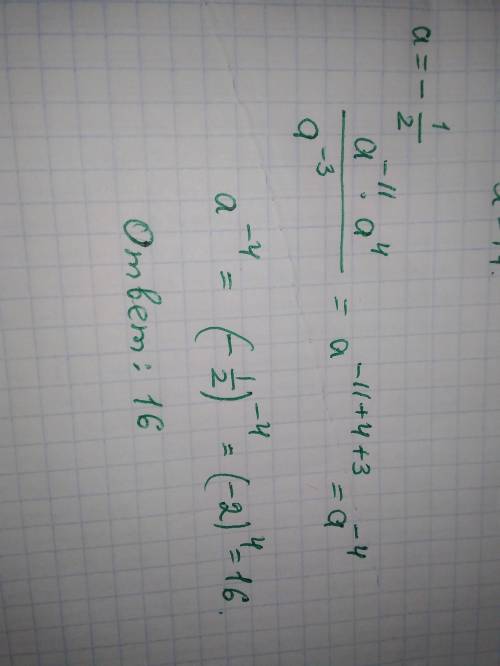 a = -1/2
a^-11 · a^4 / a^-3 = a^-11+4+3 = a^-4
a^-4 = (-1/2)^-4 = (-2)^4 = 16.
Ответ: 16